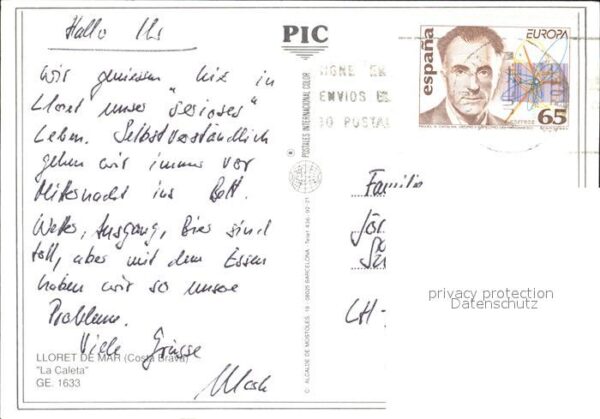 Hallo Ihr
Wir geniessen hie in
Lloret unser "seriöses"
Leben. Selbstverständlich
gehen wir immer vor
Mitternacht ins Bett.
Wetter, Ausgang, Bier sind
toll, aber mit dem Essen
haben wir so unsere
Probleme.
Viele Grüsse
LLORET DE MAR (Costa Brava)
"La Caleta"
GE. 1633
PIC
POSTALES INTERNACIONAL COLOR
C. ALCALDE DE MOSTOLES, 19 - 08025 BARCELONA -
españa
EUROPA
correos
65
ENVIOS
Familie
CH-
privacy protection
Datenschutz